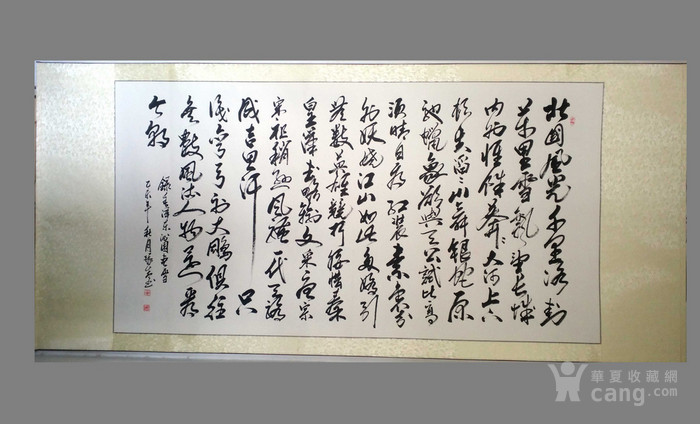 北国風光千里冰封
萬里雪飘望长城
内外惟餘莽莽大河上下
顿失滔滔山舞银蛇原
驰蜡象欲與天公試比高
须晴日看红装素裹分
外妖娆江山如此多嬌引
无数英雄競折腰惜秦
皇漢武略输文采唐宗
宋祖稍逊風骚一代天骄
成吉思汗 只
识弯弓射大雕俱往
矣数風流人物还看
今朝
録毛泽东沁园春雪
乙亥年秋月
華夏收藏網
cang.com